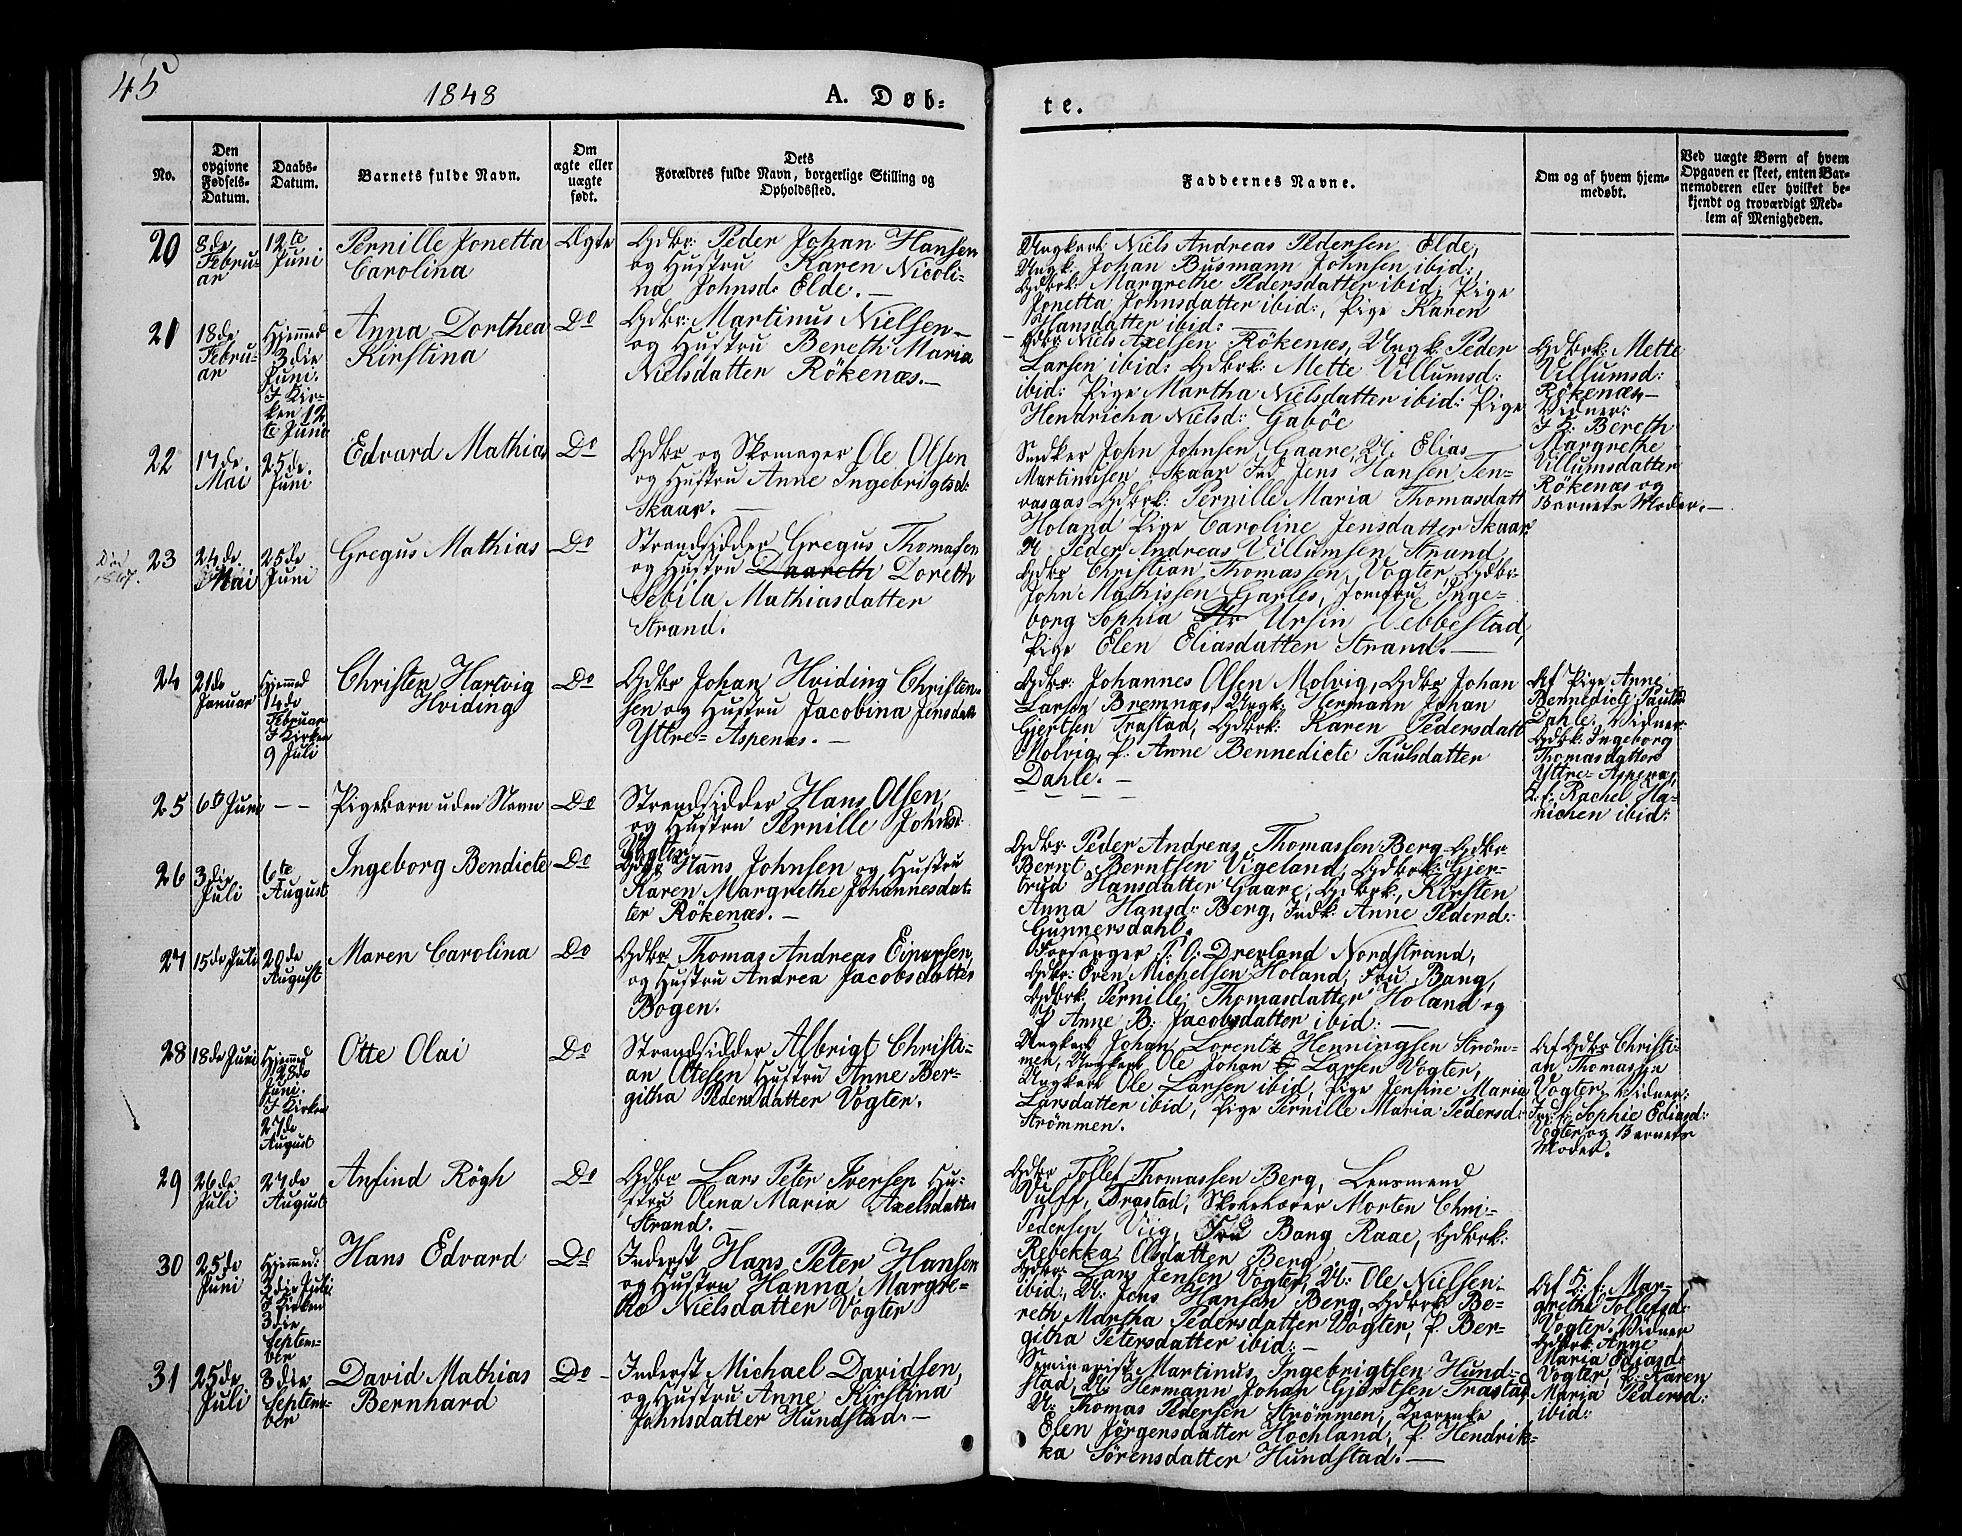 45
1848
A. Døb-
te.
No.
Den opgivne Fødsels-Datum.
Daabs-Datum.
Barnets fulde Navn.
Om ægte eller uægte født.
Dets Forældres fulde Navn, borgerlige Stilling og Opholdssted.
Faddernes Navne.
Om og af hvem hjem-medøbt.
Ved uægte Børn af hvem Opgaven er skeet, enten Bar-nemoderen eller hvilket be-kjendt og troværdigt Med-lem af Menigheden.
20
8de Febru-ar
12te Juni
Pernille Jonetta
Carolina
Ægte
Gdbr: Peder Johan Hansen
og Hustru Karen Nicoli-
na Johnsd: Elde.
Ungkarl Niels Andreas Pedersen Elde,
Ungk: Johan Busmann Johnsen ibid:,
Gdbrk: Margrethe Pedersdatter ibid, Pige
Jonetta Johnsdatter ibid:, Pige Karen
Hansdatter ibid:
21
18de Febru-ar
Hjemmed 3die Juni. I Kir-ken 12te Juni
Anna Dorthea
Kirstina
Do
Gdbr: Martinus Nielsen
og Hustru Bereth Maria
Nielsdatter Rökenæs.
Gdbr: Niels Axelsen Rökenæs, Ungk: Peder
Larsen ibid: Gdbrk: Mette Villumsd:
ibid: Pige Martha Nielsdatter ibid: Pige
Hendricha Nielsd: Gaböe
Gdbrk: Mette
Villumsd:
Rökenæs
Vidner:
I: H: Bereth
Margrethe
Villumsdatter
Rökenæs og
Barnets Moder.
22
17de Mai
25de Juni
Edvard Mathias
Do
Gdbr og Skomager Ole Olsen
og Hustru Anne Ingebrigtsd:
Skaar.
Snedker John Johnsen Gaare, U. Elias
Martinusen Skaar Ind Jens Hansen Ten-
vasaas Gdbrk: Pernille Maria Thomasdatt
Holand Pige Caroline Jensdatter Skaar
Död 1847.
23
24de Mai
25de Juni
Gregus Mathias
Do
Strandsidder Gregus Thomassen
og Hustru Daareth Doreth
Sebila Mathiasdatter
Strand.
U. Peder Andreas Villumsen Strand,
Gdbr Christian Thomassen Vogter, Gdbr
John Mathissen Garles, Jomfru Inge-
borg Sophia Ursin Vebbestad,
Pige Elen Eliasdatter Strand.
24
21de Januar
Hjemmed 14de Februar I Kirken 9 Juli
Christen Hartvig
Hviding
Do
Gdbr Johan Hviding Christen-
sen og Hustru Jacobina Jensdatt
Yttre-Aspenæs.
Gdbr: Johannes Olsen Molvig, Gdbr Johan
Larsen Bremnæs, Ungk: Hermann Johan
Gjertsen Trastad, Gdbrk: Karen Pedersdatt
Molvig, P. Anne Bennedicte Paulsdatter
Dahle.
Af Pige Anne
Bennedict: Paulsd
Dahle, Vidner:
Gdbk: Ingeborg
Thomasdatter
Yttre-Aspenæs,
P: Rachel Ha-
nichen ibid:
25
6te Juni
Pigebarn uden Navn
Do
Strandsidder Hans Olsen,
og Hustru Pernille Johnsd
Vogter
26
3die Juli
6te August
Ingeborg Bendicte
Do
Gdbr Hans Johnsen og Hustru
Karen Margrethe Johannesdat-
ter Rökenæs.
Gdbr: Peder Andreas Thomassen Berg, Gdbr
Bernt Berntsen Vigeland, Gdbrk: Gjer-
trud Hansdatter Gaare, Gdbrk, Kirsten
Anna Hansd: Berg, Indk: Anne Pedersd:
Gunnersdahl.
27
15de Juli
20de August
Maren Carolina
Do
Gdbr Thomas Andreas Eiparsen,
og Hustru Andrea Jacobsdatter
Bogen.
Forsanger P. O: Drerland Nordstrand,
Gdbr: Even Michelsen Holand, Fru Bang,
Gdbrk Pernille Thomasdatter Holand og
P Anne B: Jacobsdatter ibid:
28
18de Juni
Hjemmed 28de Juni. I Kirken 27de August
Otte Olai
Do
Strandsidder Albrigt Christi-
an Ottesen Hustru Anne Ber-
githa Pedersdatter Vogter.
Ungkarl Johan Lorentz Henningsen Ström-
men, Ungkarl Ole Johan Larsen Vogter,
Ungkarl Ole Larsen ibid, Pige Jensine Maria
Larsdatter ibid, Pige Pernille Maria Pedersd:
Strömmen.
Af Gdbr Christi-
an Thomassen
Vogter, Vidner:
Sophie Ediasd:
Vogter og Barnets
Moder.
29
26de Juli
27de August
Anfind Rögh
Do
Gdbr Lars Peter Iversen Hu-
stru Olena Maria Axelsdatter
Strand.
Gdbr Tollef Thomassen Berg, Lensmand
Vulff, Trastad, Skoleholder Morten Chri-
Pedersen Viig, Fru Bang Raae, Gdbrk:
Rebekka Olsdatter Berg
30
25de Juni
Hjemmed: 2die Juli. I Kirken 3die Septem-ber
Hans Edvard
Do
Inderst Hans Peter Hansen
og Hustru Hanna Margre-
the Nielsdatter Vogter
Gdbr: Lars Jensen Vogter, U: Ole Nielsen
ibid:, U: Jens Hansen Berg, Gdbrk Be-
reth Martha Pedersdatter Vogter, P. Ber-
githa Petersdatter ibid:
Af H: P. Mar-
grethe Tollefsd:
Vogter. Vidner
Gdbrk: Anne
Maria Ediasd:
Vogter, P. Karen
Maria Pedersd:
ibid:
31
25de Juli
3die Septem-ber
David Mathias
Bernhard
Do
Inderst Michael Davidsen,
og Hustru Anne Kirstina
Johnsdatter Hundstad.
Seminarist Martinus Ingebrigtsen Hund-
stad, U: Hermann Johan Gjertsen Trastad,
U: Thomas Pedersen Strömmen,
Elen Jörgensdatter Hochland, P. Hendrik-
ka Sörensdatter Hundstad.